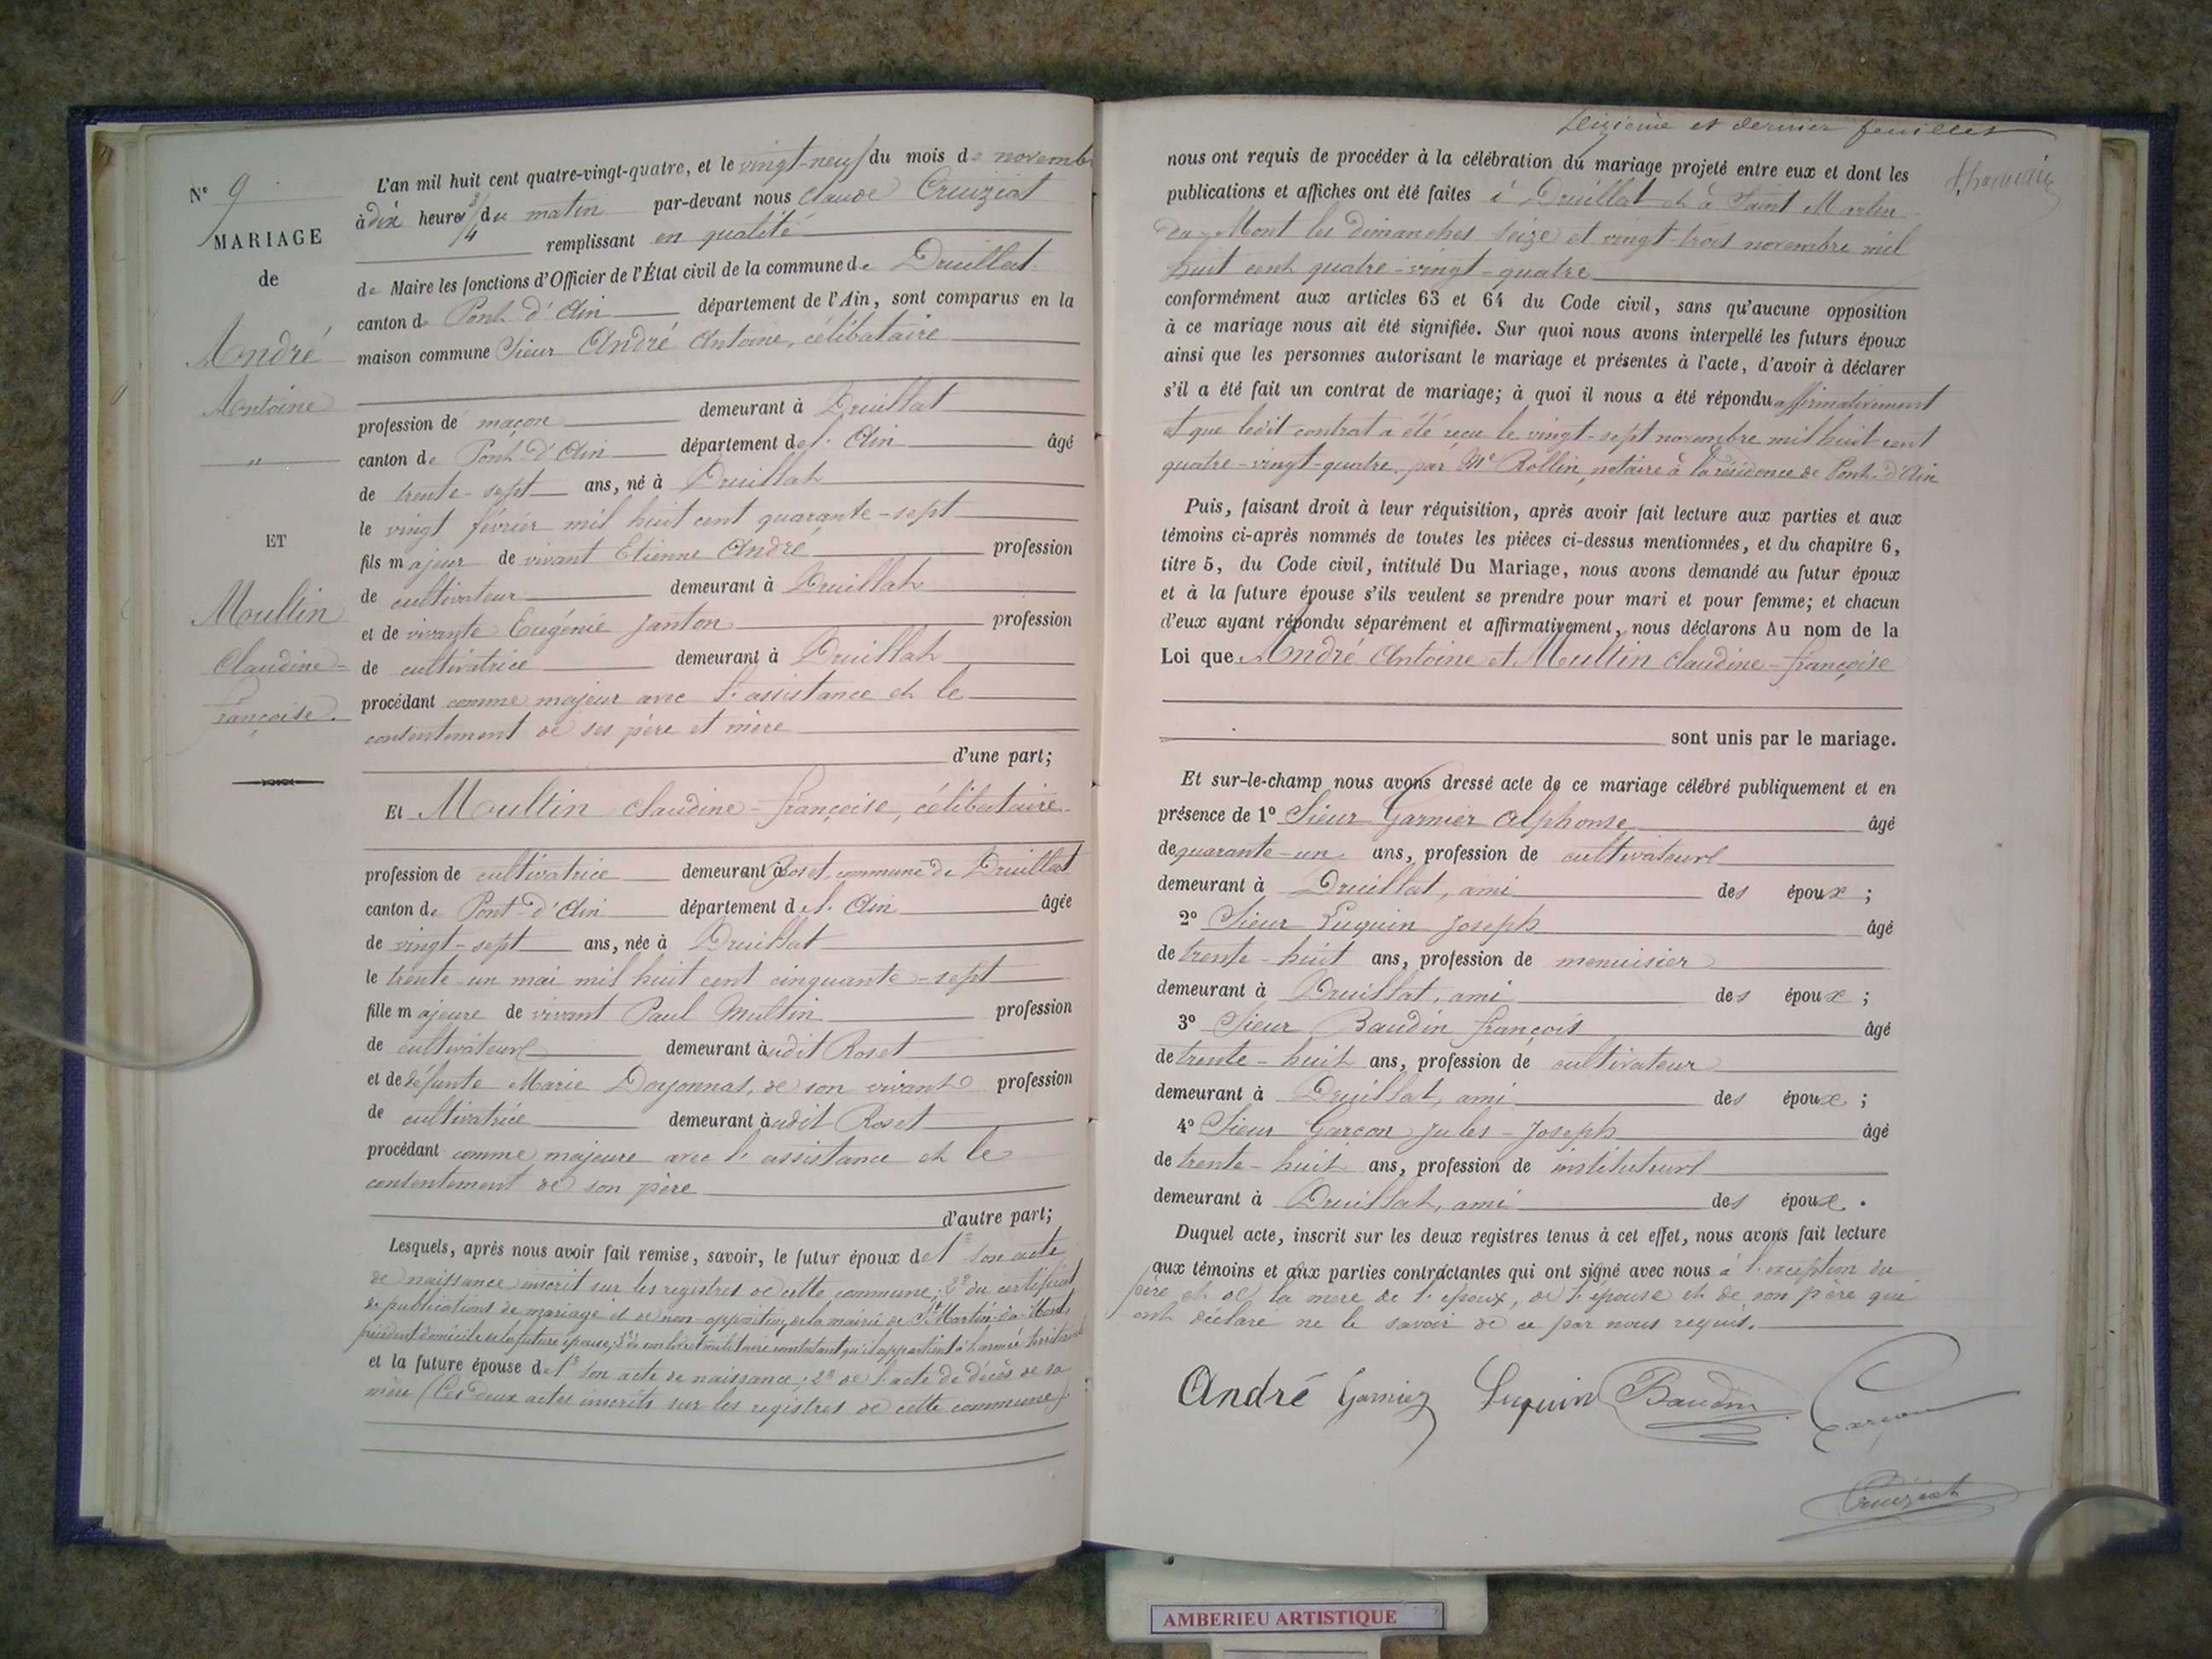 N° 9
MARIAGE
de
André
Antoine
"
ET
Moullin
Claudine-
françoise.
L'an mil huit cent quatre-vingt-quatre, et le vingt-neuf du mois de novemb
à dix heures 3/4 du matin par-devant nous Claude Cruiziat
remplissant en qualité
de Maire les fonctions d'Officier de l'État civil de la commune de Druillat
canton de Pont d'Ain département de l'Ain, sont comparus en la
maison commune Sieur André Antoine, célibataire
profession de maçon demeurant à Druillat
canton de Pont-d'Ain département de l'Ain âgé
de trente-sept ans, né à Druillat
le vingt février mil huit cent quarante-sept
fils majeur de vivant Etienne André profession
de cultivateur demeurant à Druillat
et de vivante Eugénie Janton profession
de cultivatrice demeurant à Druillat
procédant comme majeur avec l'assistance et le
consentement de ses père et mère
d'une part;
Et Moullin Claudine-françoise, célibataire
profession de cultivatrice demeurant à Roset, commune de Druillat
canton de Pont-d'Ain département de l'Ain âgée
de vingt-sept ans, née à Druillat
le trente-un mai mil huit cent cinquante-sept
fille majeure de vivant Paul Mullin profession
de cultivateur demeurant audit Roset
et de défunte Marie Doyonnas, de son vivant profession
de cultivatrice demeurant audit Roset
procédant comme majeure avec l'assistance et le
consentement de son père
d'autre part;
Lesquels, après nous avoir fait remise, savoir, le futur époux de 1° son acte
de naissance inscrit sur les registres de cette commune; 2° du certificat
de publications de mariage et de non opposition, de la mairie de St Martin-du-Mont,
précédent domicile de la future épouse; 3° de son livret militaire constatant qu'il appartient à l'armée territoriale
et la future épouse de 1° son acte de naissance; 2° de l'acte de décès de sa
mère (Ces deux actes inscrits sur les registres de cette commune)
Dixième et dernier feuillet
nous ont requis de procéder à la célébration du mariage projeté entre eux et dont les
publications et affiches ont été faites à Druillat et à Saint Martin
du-Mont les dimanches seize et vingt-trois novembre mil
huit cent quatre-vingt-quatre
conformément aux articles 63 et 64 du Code civil, sans qu'aucune opposition
à ce mariage nous ait été signifiée. Sur quoi nous avons interpellé les futurs époux
ainsi que les personnes autorisant le mariage et présentes à l'acte, d'avoir à déclarer
s'il a été fait un contrat de mariage; à quoi il nous a été répondu affirmativement
et que ledit contrat a été reçu le vingt-sept novembre mil huit cent
quatre-vingt-quatre, par Me Rollin, notaire à la résidence de Pont-d'Ain
Puis, faisant droit à leur réquisition, après avoir fait lecture aux parties et aux
témoins ci-après nommés de toutes les pièces ci-dessus mentionnées, et du chapitre 6,
titre 5, du Code civil, intitulé Du Mariage, nous avons demandé au futur époux
et à la future épouse s'ils veulent se prendre pour mari et pour femme; et chacun
d'eux ayant répondu séparément et affirmativement, nous déclarons Au nom de la
Loi que André Antoine et Moullin Claudine-françoise
sont unis par le mariage.
Et sur-le-champ nous avons dressé acte de ce mariage célébré publiquement et en
présence de 1° Sieur Garnier Alphonse âgé
de quarante-un ans, profession de cultivateur
demeurant à Druillat, ami des époux;
2° Sieur Luquin Joseph âgé
de trente-huit ans, profession de menuisier
demeurant à Druillat, ami des époux;
3° Sieur Baudin françois âgé
de trente-huit ans, profession de cultivateur
demeurant à Druillat, ami des époux;
4° Sieur Garçon Jules-Joseph âgé
de trente-huit ans, profession de instituteur
demeurant à Druillat, ami des époux.
Duquel acte, inscrit sur les deux registres tenus à cet effet, nous avons fait lecture
aux témoins et aux parties contractantes qui ont signé avec nous à l'exception du
père et de la mère de l'époux, de l'épouse et de son père qui
ont déclaré ne le savoir de ce par nous requis.
André Garnier Luquin Baudin Garcon
Cruiziat
AMBERIEU ARTISTIQUE